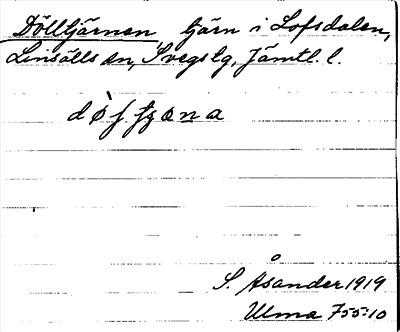 Dölltjärnen, tjärn i Lofsdalen,
Linsälls sn, Svegs tg, Jämtl. l.
S. Åsander 1919
Ulma 755:10